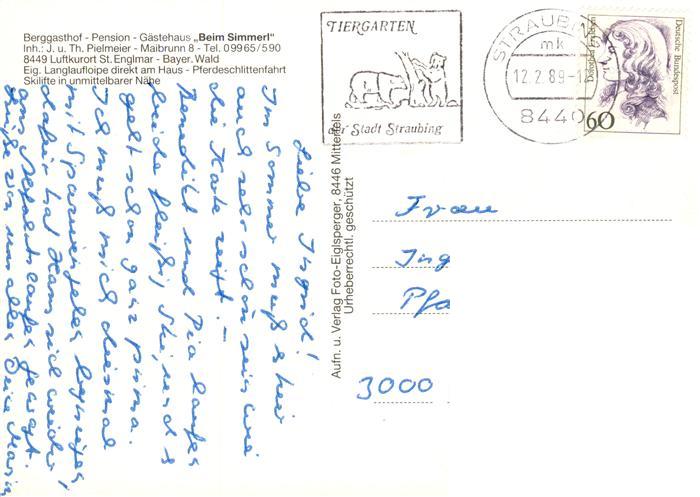 Berggasthof - Pension - Gästehaus „Beim Simmerl"
Inh.: J. u. Th. Pielmeier - Maibrunn 8 - Tel. 09965/590
8449 Luftkurort St. Englmar - Bayer. Wald
Eig. Langlaufloipe direkt am Haus - Pferdeschlittenfahrt
Skilifte in unmittelbarer Nähe
TIERGARTEN
der Stadt Straubing
STRAUBING
mk
12.2.89-12
8440
Deutsche Bundespost
60
Liebe Ingrid!
Im Sommer muß es hier
auch sehr schön sein wie
die Karte zeigt. –
Benedikt und Pia laufen
beide fleißig Ski, und es
geht schon ganz prima.
Ich muß mich diesmal
mit Spazierengehen begnügen,
dafür hat Hans sich wieder
ans Abfahrtslaufen gewagt.
Grüße von uns allen Deine Maria
Aufn. u. Verlag Foto-Eiglsperger, 8446 Mitterfels
Urheberrechtl. geschützt
Frau
Ing
Pfa
3000